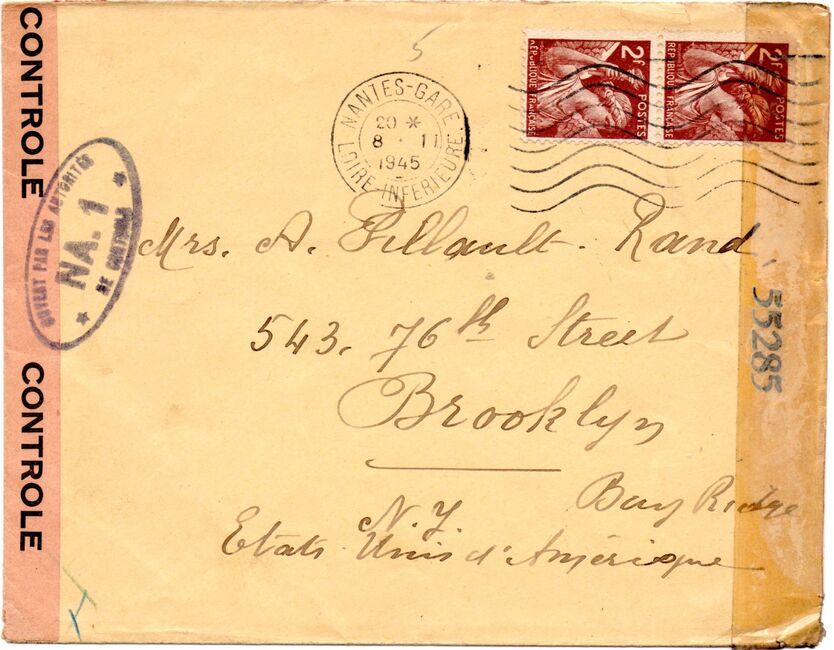 CONTROLE
CONTROLE
OUVERT PAR LES AUTORITÉS
NA. 1
DE CONTROLE
5
NANTES-GARE
20 *
8 · 11
1945
LOIRE-INFERIEURE
2f POSTES
REPUBLIQUE FRANÇAISE
2f POSTES
REPUBLIQUE FRANÇAISE
Mrs. A. Pillault-Rand
543. 76th Street
Brooklyn
Bay Ridge
N.Y.
Etats Unis d'Amérique
55285